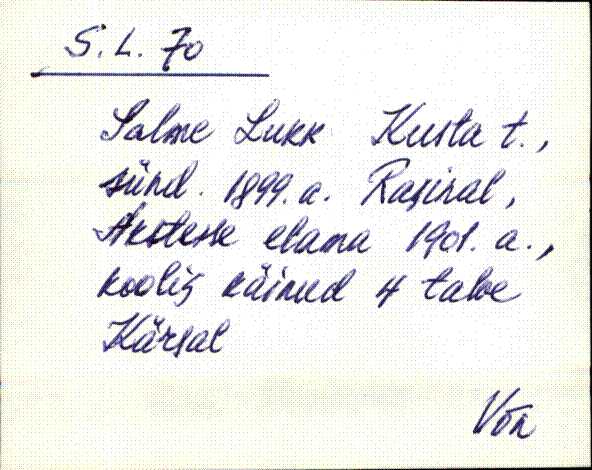 S.L. 70
Salme Lukk Kusta t.,
sünd. 1899. a. Rasinal,
Akstesse elama 1901. a.,
koolis käinud 4 talve
Kärsal
Võn